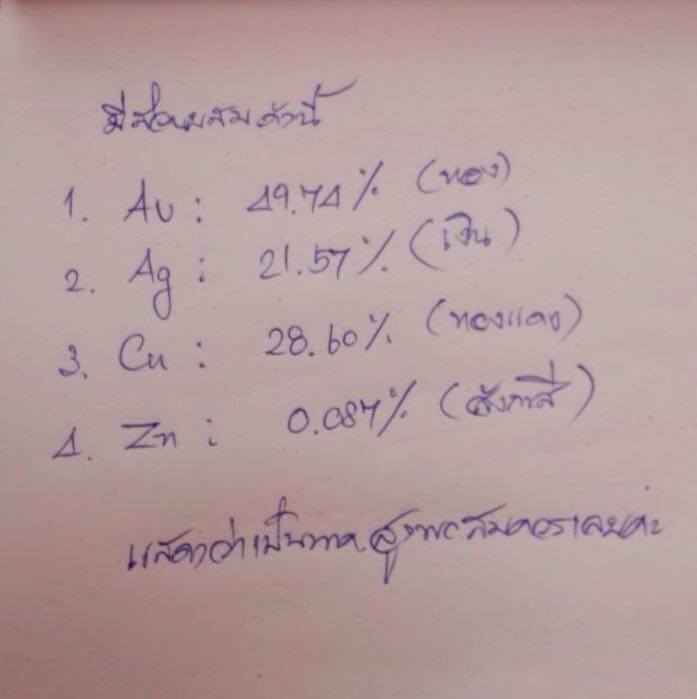 มีส่วนผสมดังนี้
1. Au : 49.74% (ทอง)
2. Ag : 21.57% (เงิน)
3. Cu : 28.60% (ทองแดง)
4. Zn : 0.087% (สังกะสี)
แสดงว่าเป็นนาค สูงพอสมควรเลยค่ะ